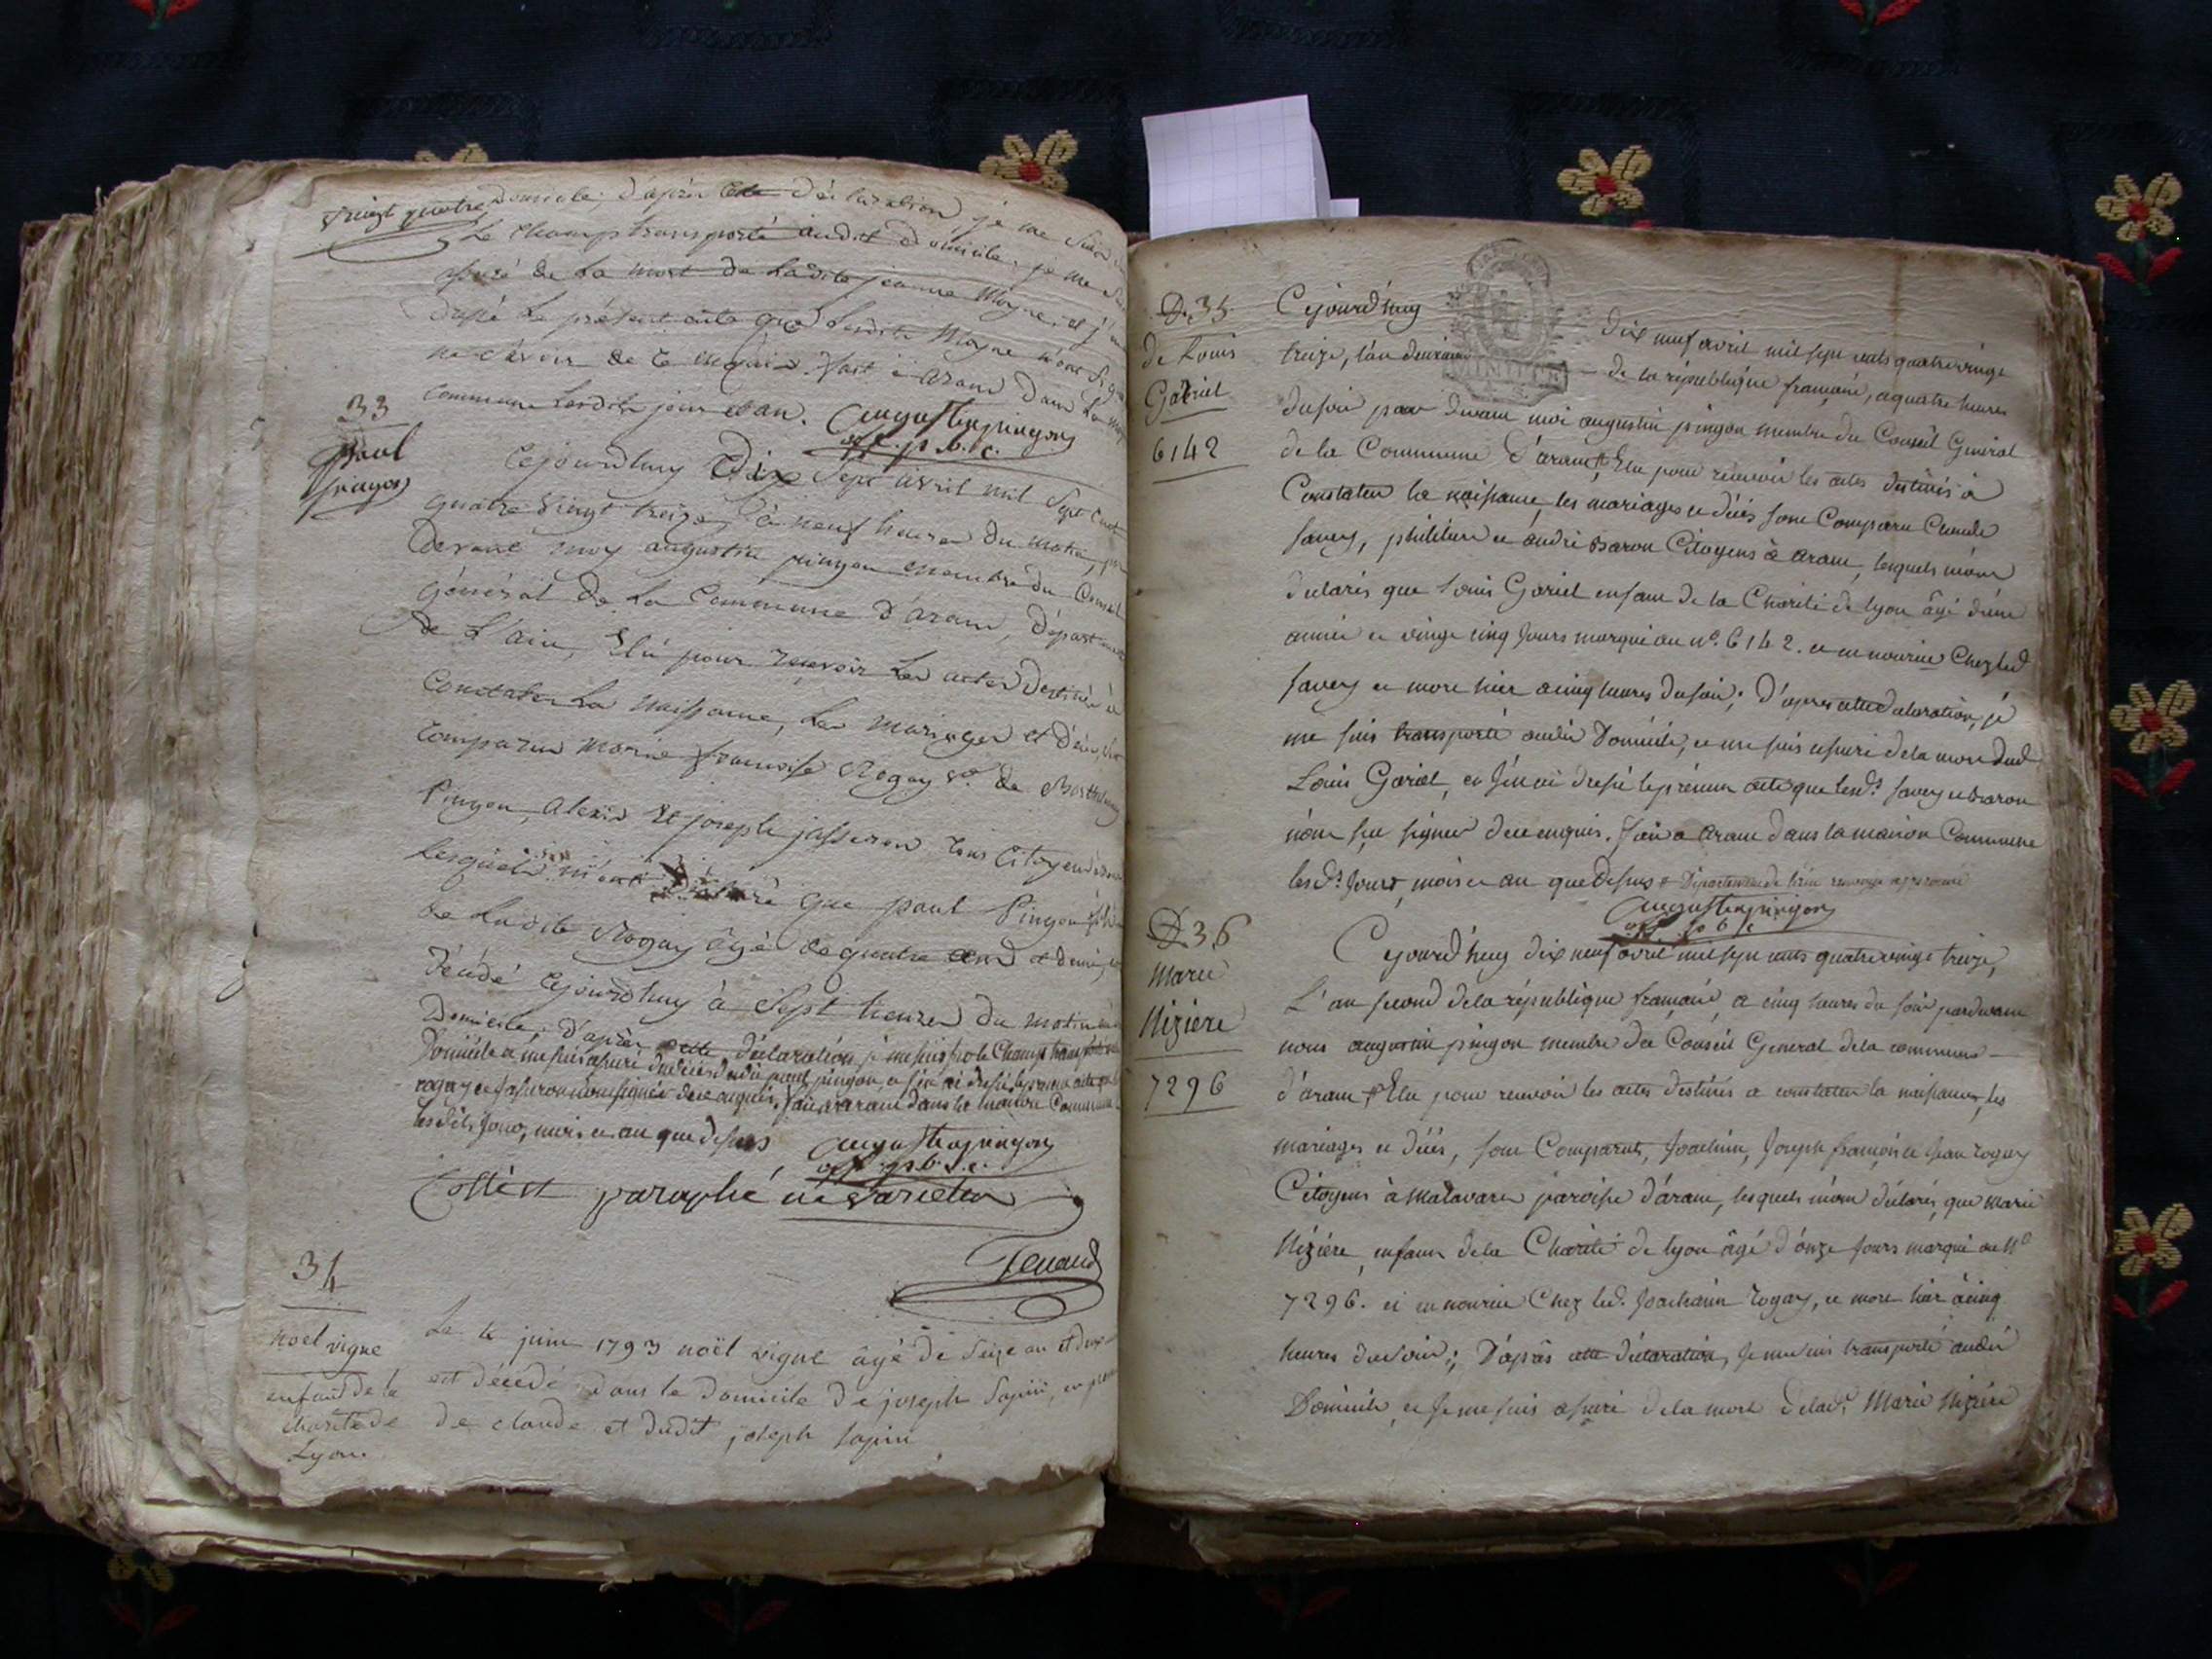 vingt quatre
domicile; d'après cette déclaration je me suis
le champ transporté audit domicile, je me suis
assuré de la mort de ladite jeanne Moyne, et j'ai
dressé le présent acte que lesdits Moyne n'ont signé
ne savoir de ce requis. fait à aranc dans la
commune lesdits jour et an. Augustin pingon
off. p. b. c.
33
Paul
pingon
Cejourdhuy Dix Sept avril mil Sept cent
quatre vingt treize, à neuf heures du matin, par
devant moy augustin pingon membre du Conseil
général de la Commune d'aranc, département
de l'ain, Elû pour recevoir les actes destinés à
Constater la naissance, les mariages et décès, sont
comparus marie françoise Rogay ve. de Barthelemy
Pingon, alexis et joseph jasseron tous Citoyens
lesquels m'ont déclaré que paul Pingon fils
de ladite Rogay âgé de quatre ans et demi,
décédé cejourdhuy à Sept heures du matin
Domicile; d'après cette déclaration je me suis sur le Champ transporté
Domicile et me suis assuré du décès dudit paul pingon, et j'en ai dressé le présent acte que
rogay et jasseron n'ont signés de ce enquis. fait à aranc dans la maison Commune
lesdits jour, mois et an que dessus Augustin pingon
off. p. b. c.
Cotté et paraphé ne varietur
Tenand
34
noël vigne
enfant de la
charité de
Lyon.
Le 4 juin 1793 noël vigne âgé de Seize an et
est décédé dans le domicile de joseph Sapin, en
de claude et dudit joseph Sapin
D. 35.
de Louis
Gabriel
6142
Cejourd'huy dix neuf avril mil sept cents quatre vingt
treize, l'an deuxième de la république française, a quatre heures
du soir par devant moi augustin pingon membre du Conseil Général
de la Commune d'aranc # Elu pour recevoir les actes destinés à
Constater la naissance, les mariages et décès sont Comparu Claude
savey, philibert et andré Baron Citoyens à aranc, lesquels m'ont
déclarés que Louis Gariel enfant de la Charité de lyon âgé d'une
année et vingt cinq jours marqué au n°. 6142. et en nourice Chez led
savey est mort hier a cinq heures du soir; D'apres cette déclaration, je
me suis transporté audit Domicile, et me suis assuré de la mort dud
Louis Gariel, et j'en ai dressé le présent acte que lesds. savey et Baron
n'ont sçu signer de ce enquis. fait a aranc dans la maison Commune
lesds. jour, mois et an que dessus # Département de l'ain renvoi approuvé
Augustin pingon
off. p. b. c.
D. 36
Marie
Nizière
7296
Cejourd'huy dix neuf avril mil sept cents quatre vingt treize,
L'an second de la république française, a cinq heures du soir pardevant
nous augustin pingon membre du Conseil Général de la commune
d'aranc # Elu pour recevoir les actes destinés a constater la naissance, les
mariages et décès, sont Comparuts, Joachim, Joseph françois et jean rogay
Citoyens à Malavare paroisse d'aranc, lesquels m'ont déclarés, que Marie
Nizière, enfant de la Charité de lyon âgé d'onze jours marqué au No
7296. et en nourice Chez led. Joachaim rogay, est mort hier à cinq
heures du soir; D'après cette déclaration, je me suis transporté audit
Domicile, et je me suis assuré de la mort de lad. Marie Nizière